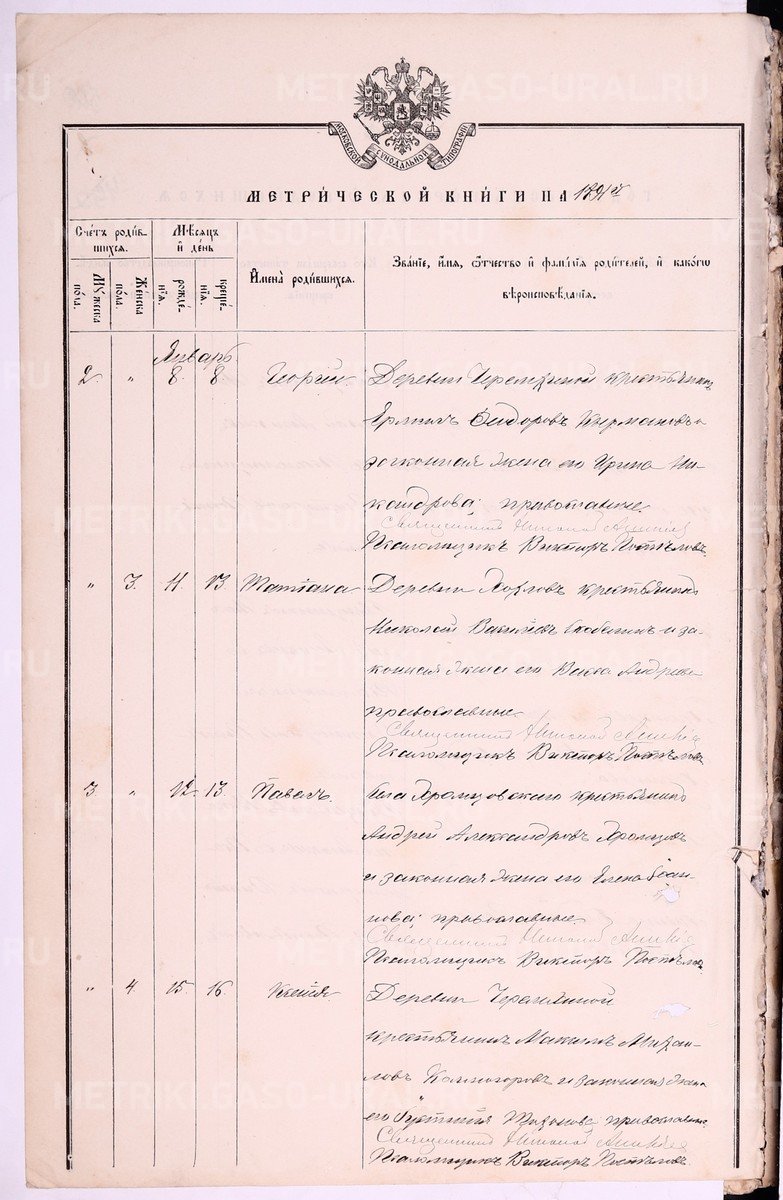 МОСКОВСКОЙ СѴНОДАЛЬНОЙ ТИПОГРАФІИ
МЕТРИ́ЧЕСКОЙ КНИ́ГИ НА 1891й
Сче́тъ роди́вшихся.
Мѣсяцъ и де́нь
Имена̀ роди́вшихся.
Зва́ніе, и́мя, ѻ҆́тчество и фамі́лія роди́телей, и како́гѡ вѣроисповѣ́данія.
Му́жеска по́ла.
Же́нска по́ла.
рожде́нія.
креще́нія.
Январь
2 " 8. 8 Георгій Деревни крестьянинъ
Ермилъ Сидоровъ и
законная жена его Ирина Ни-
кандрова; православные
Священникъ Николай
Псаломщикъ Викторъ Поспѣловъ.
" 3. 11 13 Татіана Деревни крестьянинъ
Николай и за-
конная жена его Васса Андреева
православные
Священникъ Николай
Псаломщикъ Викторъ Поспѣловъ
3 " 12 13. Павелъ. Села крестьянинъ
Андрей Александровъ
и законная жена его Елена Іоан-
нова; православные
Священникъ Николай
Псаломщикъ Викторъ Поспѣловъ
" 4. 15 16. Ксенія Деревни
крестьянинъ Максимъ Михаи-
ловъ Колмогоровъ и законная жена
его Іустинія православные
Священникъ Николай
Псаломщикъ Викторъ Поспѣловъ.